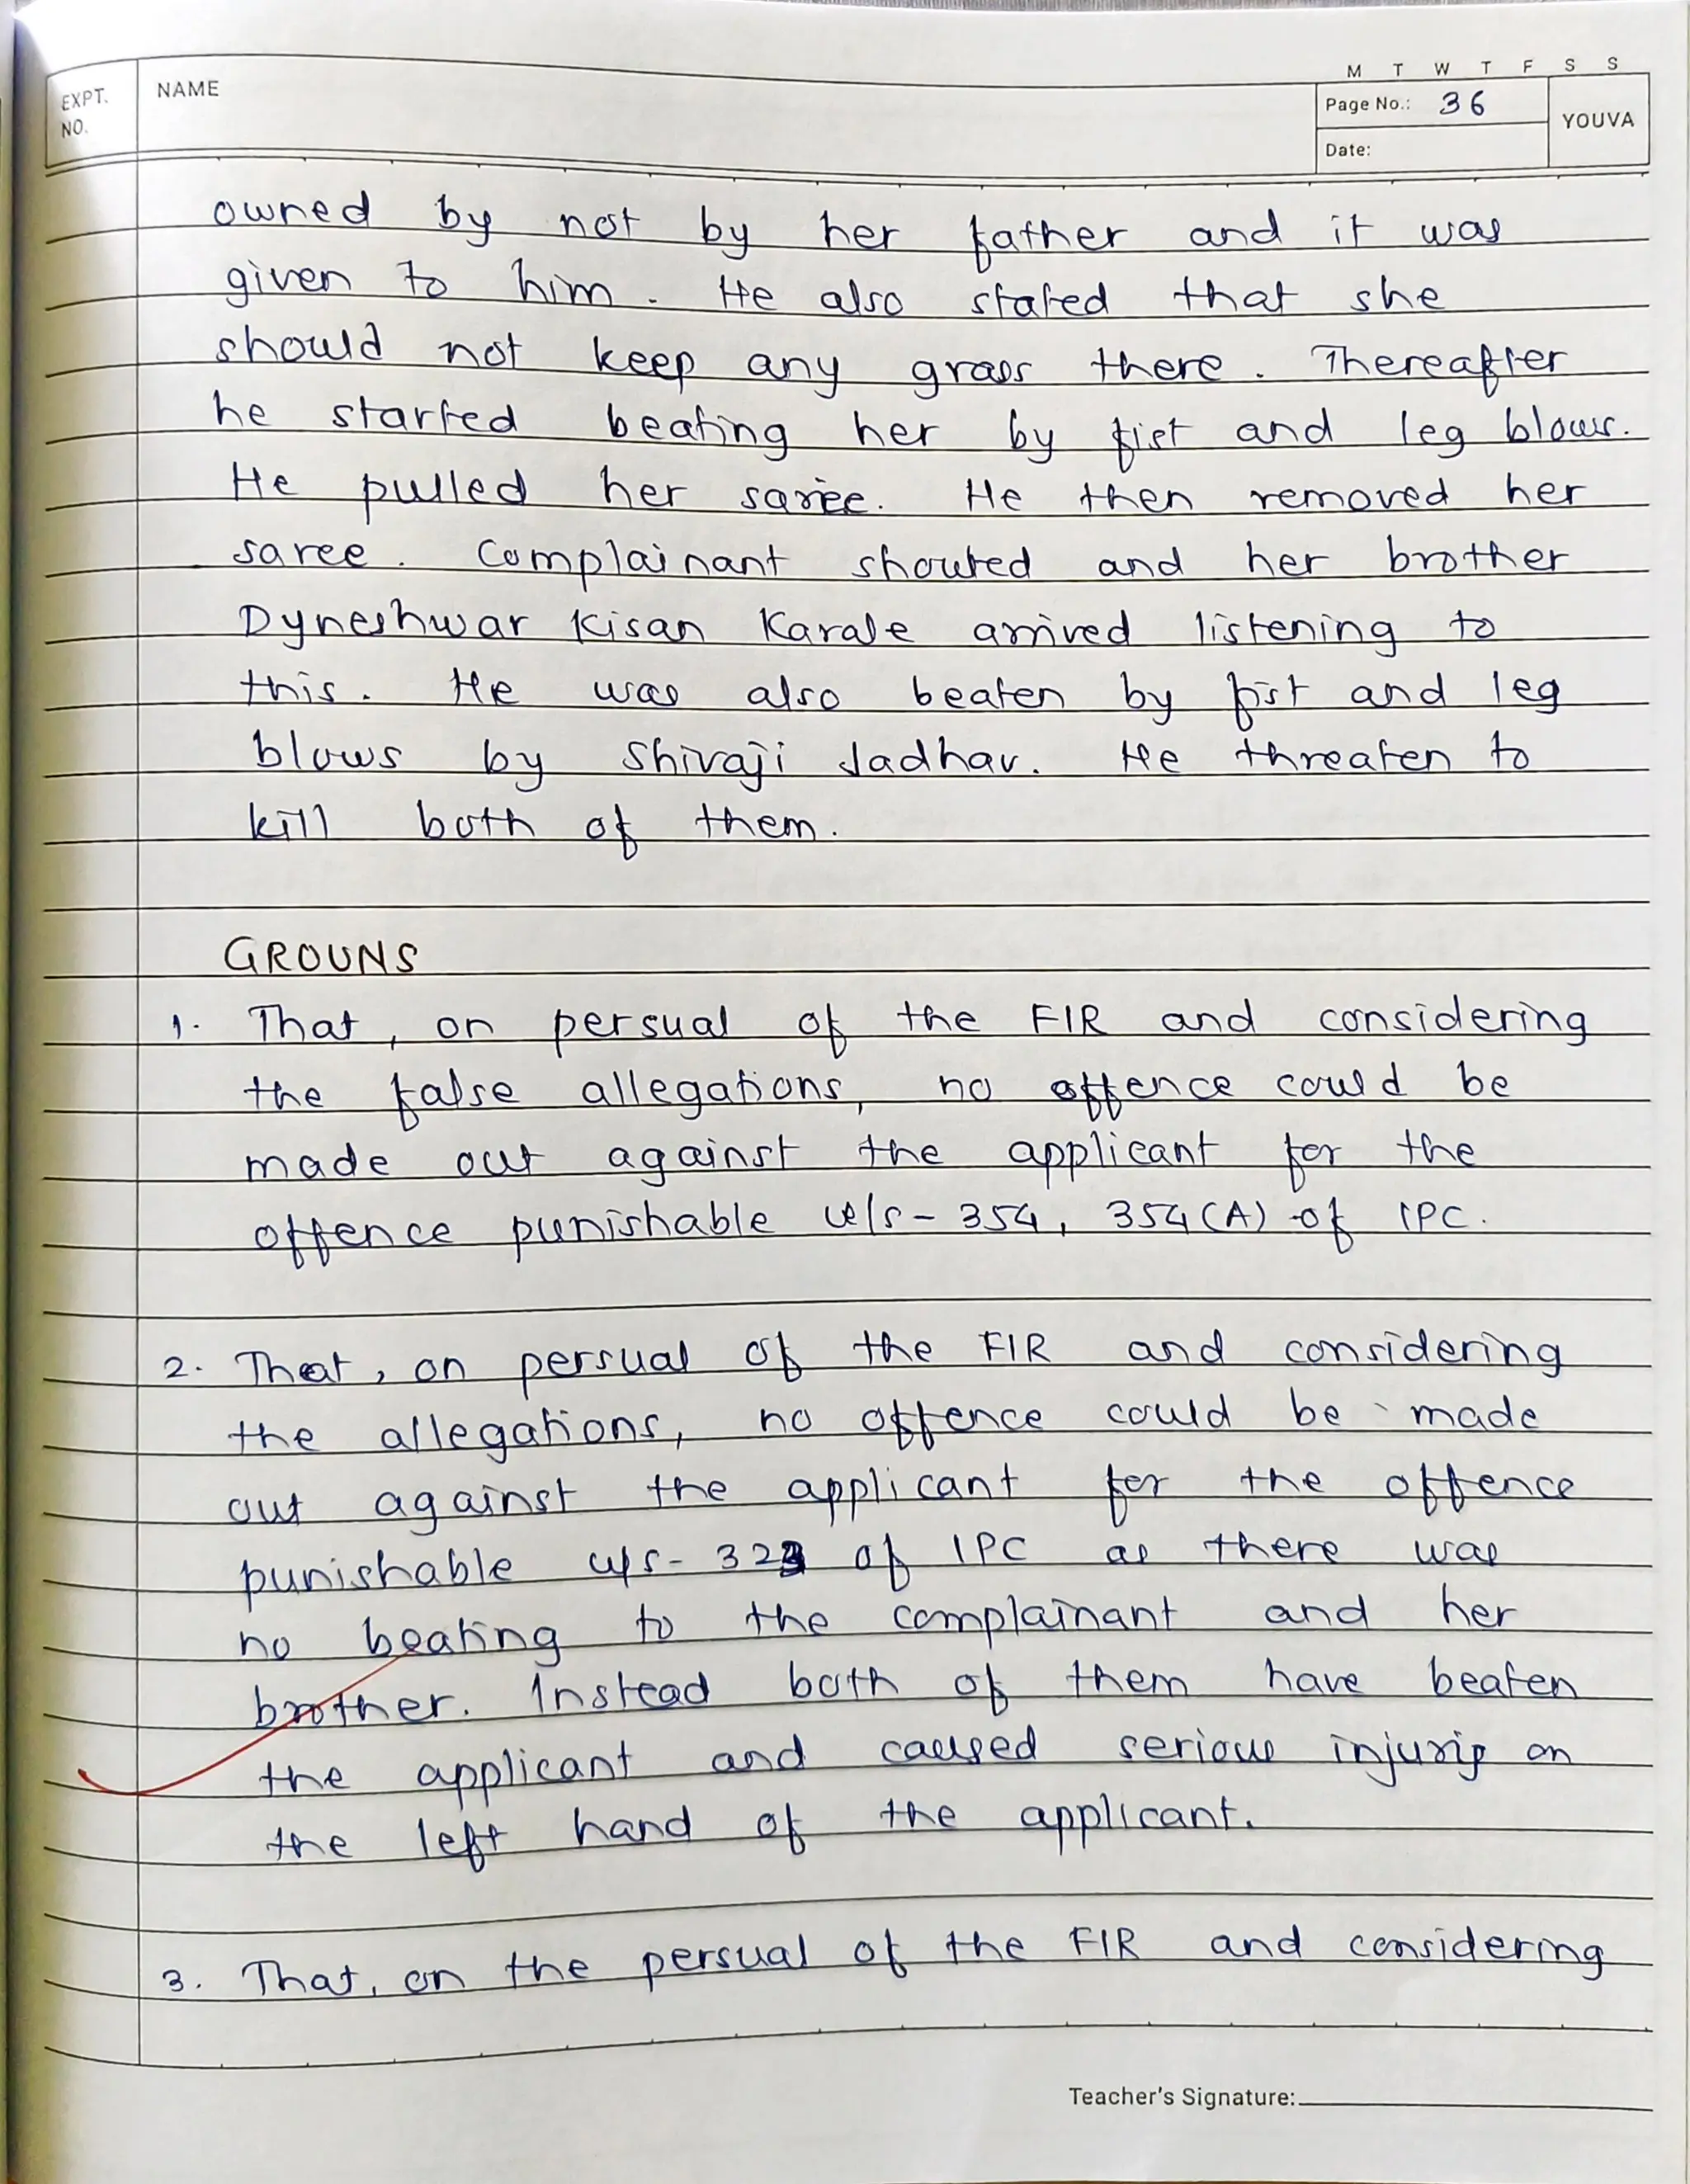 M T W T F S S
EXPT. NO.
NAME
Page No.: 36
YOUVA
Date:
owned by not by her father and it was
given to him. He also stated that she
should not keep any grass there. Thereafter
he started beating her by fist and leg blows.
He pulled her saree. He then removed her
saree. Complainant shouted and her brother
Dyneshwar Kisan Karale arrived listening to
this. He was also beaten by fist and leg
blows by Shivaji Jadhav. He threaten to
kill both of them.
GROUNS
1. That, on persual of the FIR and considering
the false allegations, no offence could be
made out against the applicant for the
offence punishable u/s - 354, 354(A) of IPC.
2. That, on persual of the FIR and considering
the allegations, no offence could be made
out against the applicant for the offence
punishable u/s - 323 of IPC as there was
no beating to the complainant and her
brother. Instead both of them have beaten
the applicant and caused serious on
the left hand of the applicant.
3. That, on the persual of the FIR and considering
Teacher's Signature: